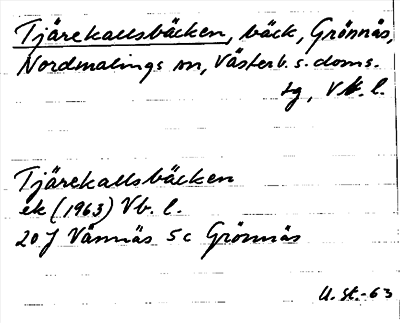 Tjärekallsbäcken, bäck, Grönnäs,
Nordmalings sn, Västerb. s. doms.
sg, Vb. l.
Tjärekallsbäcken
ek (1963) Vb. l.
20 J Vännäs 5c Grönnäs
U. St.-63